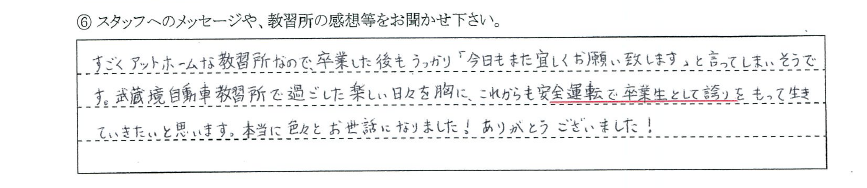 ⑥ スタッフへのメッセージや、教習所の感想等をお聞かせ下さい。
すごくアットホームな教習所なので、卒業した後もうっかり「今日もまた宜しくお願い致します」と言ってしまいそうで
す。武蔵境自動車教習所で過ごした楽しい日々を胸に、これからも安全運転で卒業生として誇りをもって生き
ていきたいと思います。本当に色々とお世話になりました！ありがとうございました！